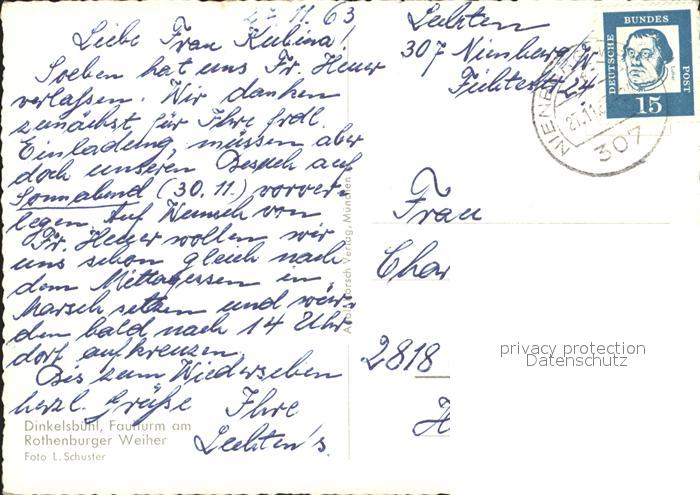 27.11.63
Liebe Frau Kubina!
Soeben hat uns Fr. Heuer
verlassen. Wir danken
zunächst für Ihre frdl.
Einladung, müssen aber
doch unseren Besuch auf
Sonnabend (30.11.) vorver-
legen. Auf Wunsch von
Fr. Heuer wollen wir
uns schon gleich nach
dem Mittagessen in
Marsch setzen und wür-
den bald nach 14 Uhr
dort aufkreuzen.
Bis zum Wiedersehen
herzl. Grüße Ihre
Lechten's.
Dinkelsbühl, Faulturm am
Rothenburger Weiher
Foto L. Schuster
Verlag, München
Lechten
307 Nienburg/W
Fichtestr. 24
DEUTSCHE BUNDES POST
Luther
15
NIENBURG
27.11.
307
Frau
Char
2818
H
privacy protection
Datenschutz